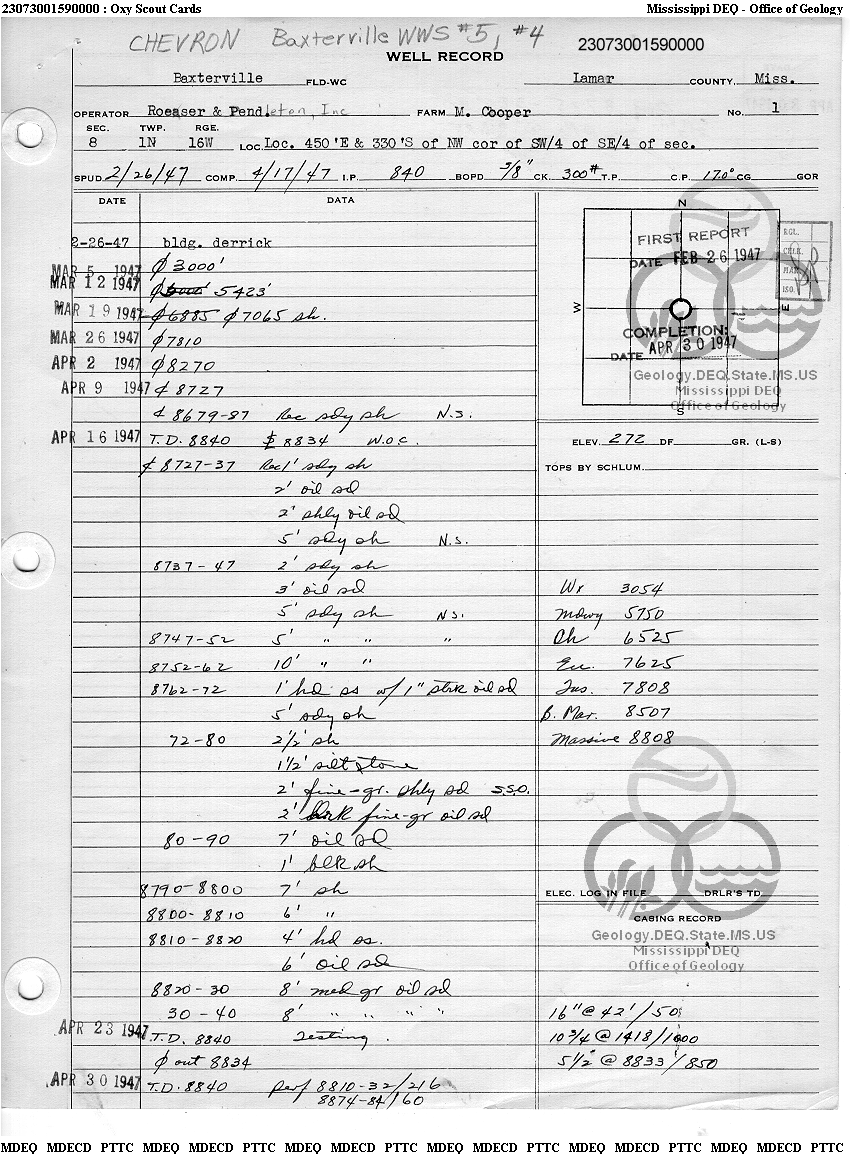 23073001590000 : Oxy Scout Cards Mississippi DEQ - Office of Geology
CHEVRON Baxterville WWS #5, #4 23073001590000
WELL RECORD
Baxterville FLD-WC Lamar COUNTY, Miss.
OPERATOR Roeaser & Pendleton, Inc FARM M. Cooper NO. 1
SEC. TWP. RGE.
8 1N 16W LOC. Loc. 450'E & 330'S of NW cor of SW/4 of SE/4 of sec.
SPUD. 2/26/47 COMP. 4/17/47 I.P. 840 BOPD 3/8" CK. 300# T.P. C.P. 17.0° CG GOR
DATE DATA
N
2-26-47 bldg. derrick
FIRST REPORT
DATE FEB 26 1947
RGL.
CHLK.
MAP
ISO.
MAR 5 1947 ϕ 3000'
MAR 12 1947 ϕ 5423'
MAR 19 1947 ϕ 6885 ϕ 7065 sh.
W E
MAR 26 1947 ϕ 7810
COMPLETION:
DATE APR 30 1947
APR 2 1947 ϕ 8270
Geology.DEQ.State.MS.US
Mississippi DEQ
Office of Geology
S
APR 9 1947 ¢ 8727
¢ 8679-87 Rec sdy sh N.S.
APR 16 1947 T.D. 8840 $ 8834 W.O.C.
ELEV. 272 DF. GR. (L-S)
¢ 8727-37 Rec 1' sdy sh
TOPS BY SCHLUM.
2' oil sd
2' shly oil sd
5' sdy sh N.S.
8737-47 2' sdy sh
3' oil sd
5' sdy sh N.S.
8747-52 5' " " "
8752-62 10' " "
8762-72 1' hd ss w/ 1" strk oil sd
5' sdy sh
72-80 2½' sh
1½' siltstone
2' fine-gr. shly sd S.S.O.
2' drk fine-gr oil sd
80-90 7' oil sd
1' blk sh
8790-8800 7' sh
8800-8810 6' "
8810-8820 4' hd ss.
6' oil sd
8820-30 8' med gr oil sd
30-40 8' " " " "
APR 23 1947 T.D. 8840 Testing.
ϕ out 8834
APR 30 1947 T.D. 8840 Perf 8810-32/216
8874-84/60
Wx 3054
Mdwy 5750
Ch 6525
Eu. 7625
Tus. 7808
B. Mar. 8507
Massive 8808
ELEC. LOG IN FILE DRLR'S TD.
CASING RECORD
Geology.DEQ.State.MS.US
Mississippi DEQ
Office of Geology
16" @ 42'/50
10 3/4 @ 1418/1000
5 1/2" @ 8833'/850
MDEQ MDECD PTTC MDEQ MDECD PTTC MDEQ MDECD PTTC MDEQ MDECD PTTC MDEQ MDECD PTTC MDEQ MDECD PTTC